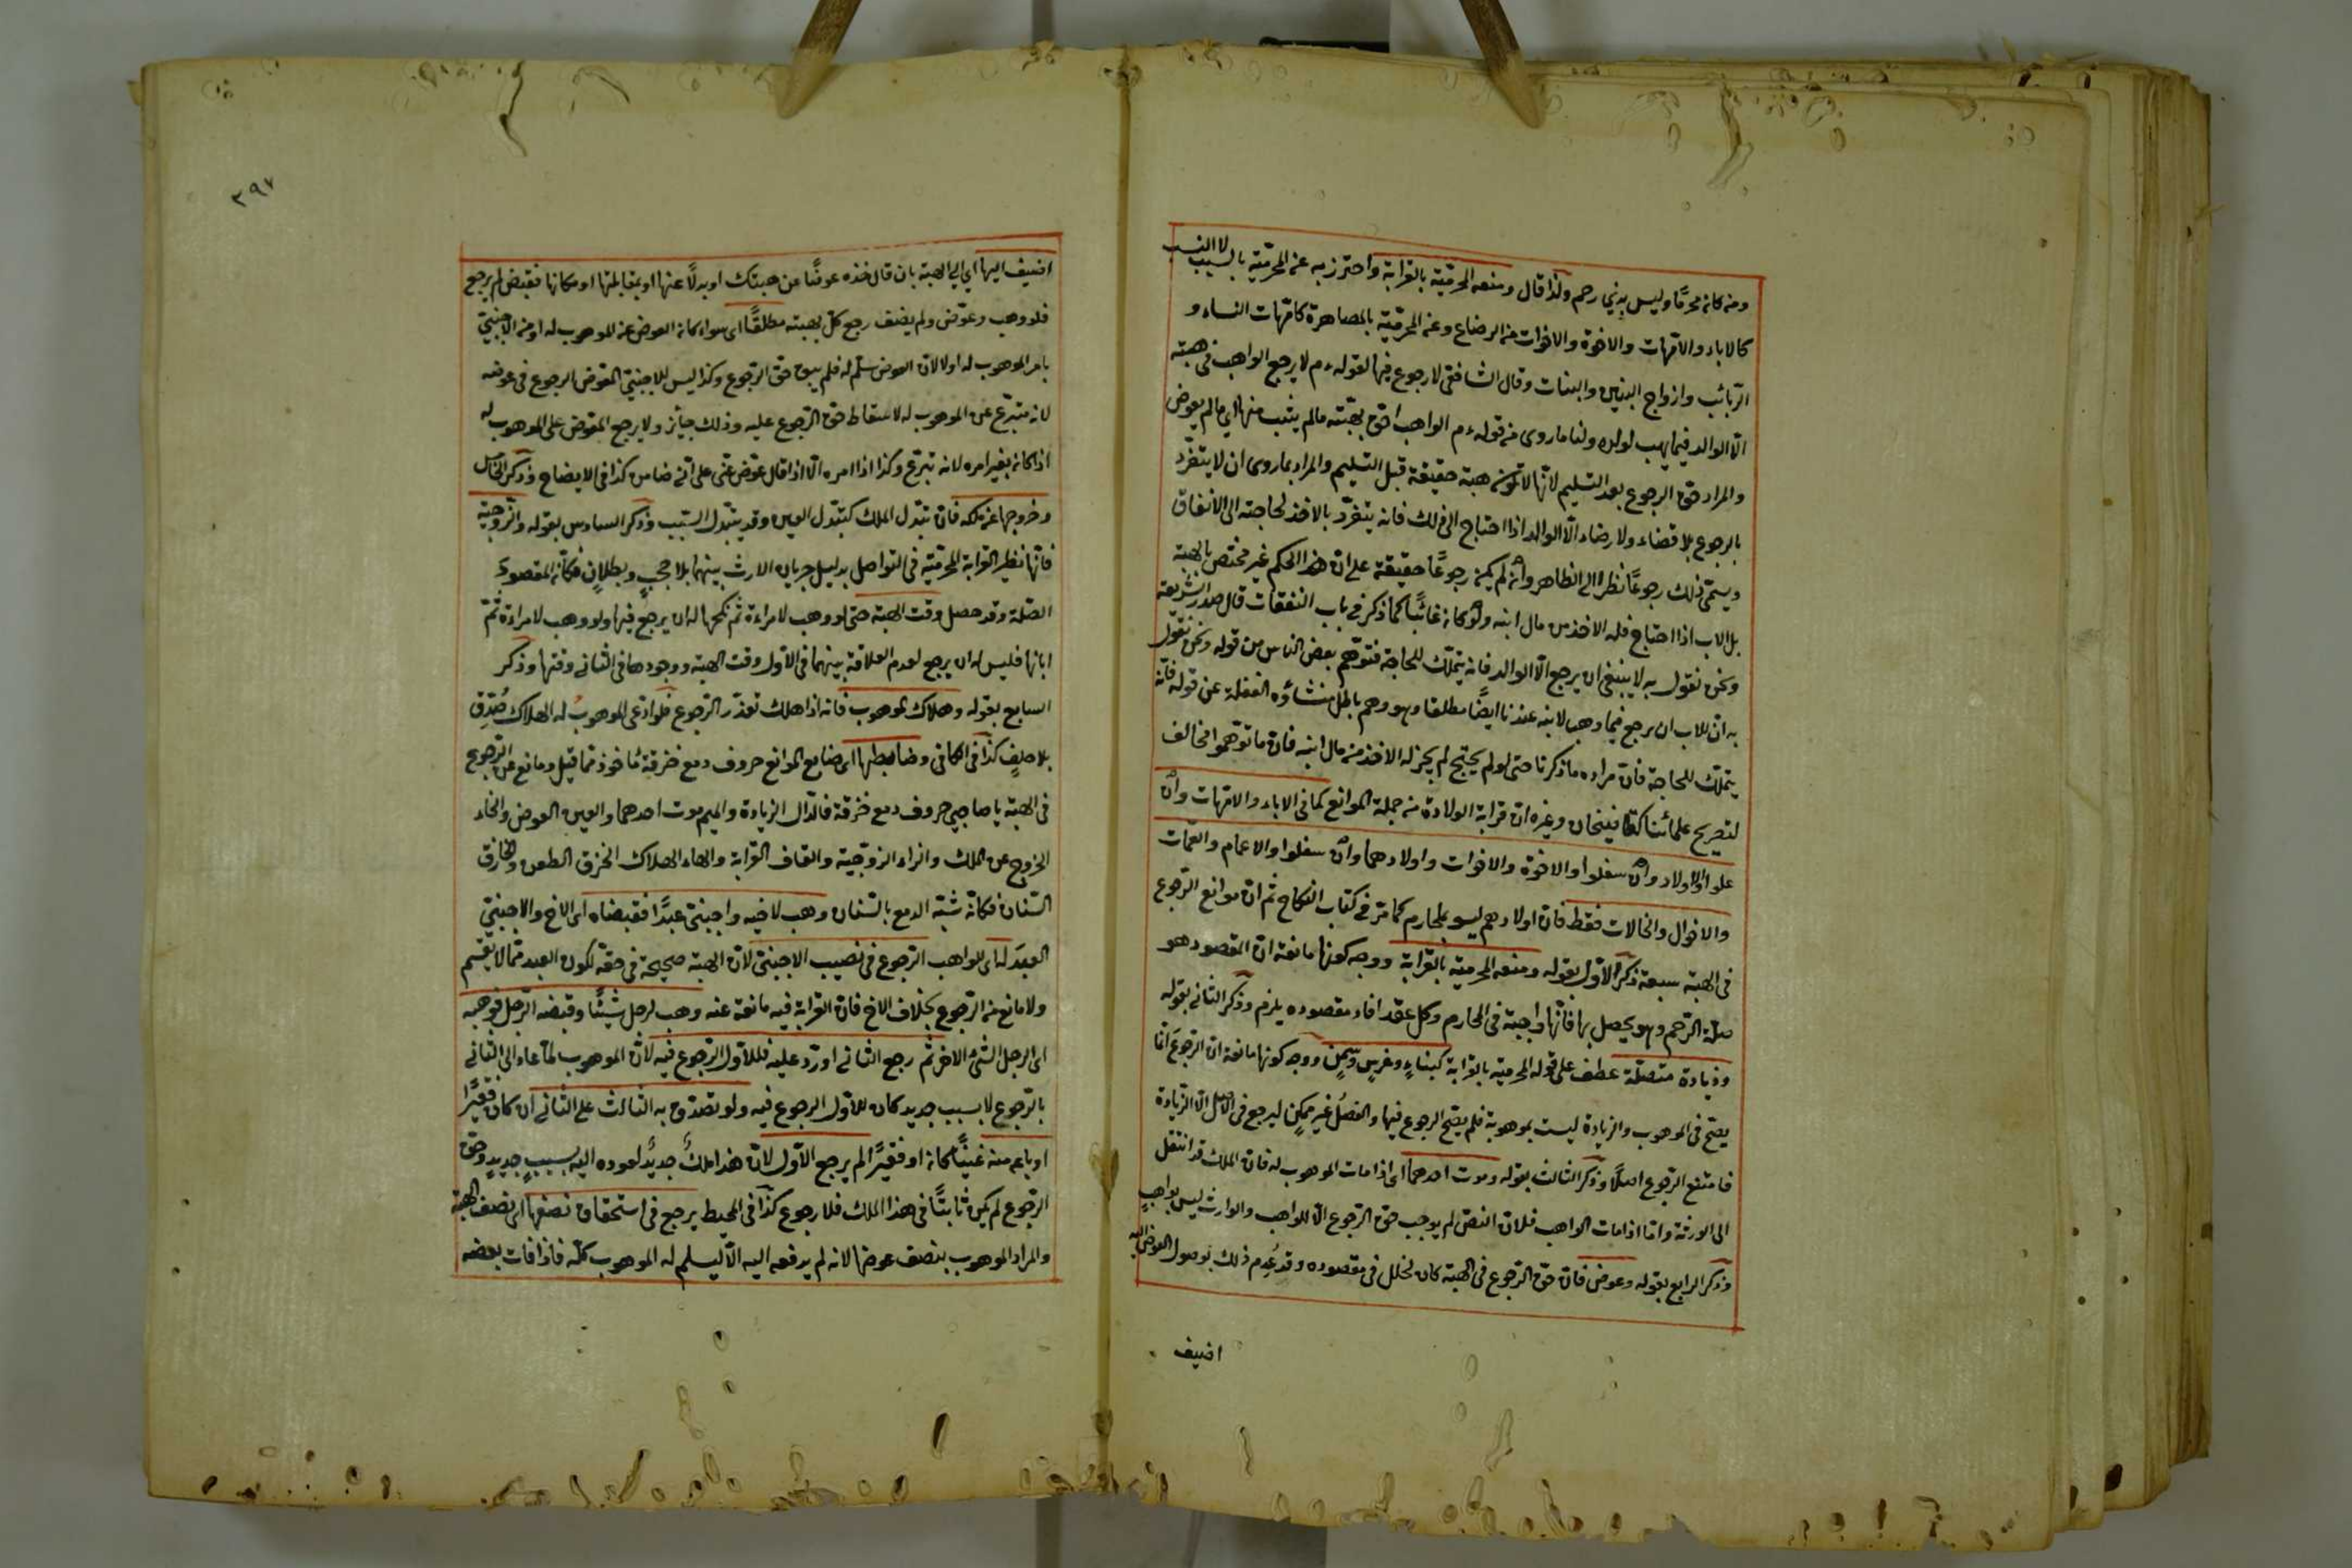 ومن كان محرمًا وليس بذي رحم ولذا قال ومنعه المحرميّة بالقرابة واحترز به عن المحرميّة بالسبب لا النسب
كالاباء والامّهات والاخوة والاخوات من الرضاع وعن المحرميّة بالمصاهرة كامّهات النساء و
الربائب وازواج البنين والبنات وقال الشافعي لا رجوع فيها لقوله ءم لا يرجع الواهب في هبته
الّا الوالد فيما يهب لولده ولنا ما روى من قوله ءم الواهب احق بهبته ما لم يثب منها اي ما لم يعوض
والمراد حق الرجوع بعد التسليم لانّها لا تكون هبة حقيقة قبل التسليم والمراد بما روى ان لا يتفرّد
بالرجوع بلا قضاء ولا رضاء الّا الوالد اذا احتاج الى ذلك فانه يتفرّد بالاخذ لحاجته الى الانفاق
ويسمّى ذلك رجوعًا نظرا الى الظاهر وان لم يكن رجوعًا حقيقة على ان هذا الحكم غير مختص بالهبة
بل الاب اذا احتاج فله الاخذ من مال ابنه ولو كان غائبًا كما ذكر في باب النفقات قال صدر الشريعة
ونحن نقول به لا ينبغي ان يرجع الّا الوالد فانه يتملّك للحاجة فتوهّم بعض الناس من قوله ونحن نقول
به انّ للاب ان يرجع فيما وهب لابنه عندنا ايضًا مطلقا وهو وهم باطل منشاؤه الغفلة عن قوله فانه
يتملّك للحاجة فان مراده ما ذكرنا حتى لو لم يحتج لم يجز له الاخذ من مال ابنه فان ما توهّموا مخالف
لتصريح علمائنا كقاضيخان وغيره ان قرابة الولادة من جملة الموانع كما في الاباء والامّهات وان
علوا والاولاد وان سفلوا والاخوة والاخوات واولادهما وان سفلوا والاعمام والعمّات
والاخوال والخالات فقط فان اولادهم ليسو بمحارم كما مرّ في كتاب النكاح ثم ان موانع الرجوع
في الهبة سبعة ذكر الاول بقوله ومنعه المحرميّة بالقرابة ووجه كونها مانعة ان المقصود هو
صلة الرحم وهو يحصل بها فانّها واجبة في المحارم وكل عقد افاد مقصوده يلزم وذكر الثاني بقوله
وزيادة متصلة عطف على قوله المحرمية بالقرابة كبناءٍ وغرسٍ وسمنٍ ووجه كونها مانعة ان الرجوع انما
يصحّ في الموهوب والزيادة ليست بموهوبة فلم يصحّ الرجوع فيها والفصل غير ممكن ليرجع في الاصل الّا الزيادة
فامتنع الرجوع اصلًا وذكر الثالث بقوله وموت احدهما اي اذا مات الموهوب له فان الملك قد انتقل
الى الورثة وامّا اذا مات الواهب فلان النصّ لم يوجب حق الرجوع الّا للواهب والوارث ليس بواهبٍ
وذكر الرابع بقوله وعوض فان حق الرجوع في الهبة كان لخلل في مقصوده وقد عُدِم ذلك بوصول العوض اليه
اضيف
٢٩٧
اضيف اليها اي الى الهبة بان قال خذه عوضًا عن هبتك او بدلًا عنها او بمقابلتها او مكانها فقبض لم يرجع
فلو وهب وعوّض ولم يضف رجع كلّ بهبته مطلقًا اى سواء كان العوض من الموهوب له او من الاجنبيّ
بامر الموهوب له او لا لان العوض سلّم له فلم يبق حق الرجوع وكذا ليس للاجنبيّ المعوّض الرجوع في عوضه
لانه متبرّع عن الموهوب له لاسقاط حق الرجوع عليه وذلك جائز ولا يرجع المعوّض على الموهوب له
اذا كان بغير امره لانه تبرّع وكذا اذا امره الّا اذا قال عوّض عنّى على انّي ضامن كذا في الايضاح وذكر الخامس
وخروجها عن ملكه فان تبدّل الملك كتبدّل العين وقد يتبدّل السبب وذكر السادس بقوله والزوجيّة
فانّها نظير القرابة المحرميّة في التواصل بدليل جريان الارث بينهما بلا حجبٍ وبطلانٍ فكان المقصود
الصّلة وقد حصل وقت الهبة حتى لو وهب لامراءة ثم نكحها له ان يرجع فيها ولو وهب لامراءة ثمّ
ابانها فليس له ان يرجع لعدم العلاقة بينهما في الاول وقت الهبة ووجودها في الثاني وقتها وذكر
السابع بقوله وهلاك الموهوب فانه اذا هلك تعذّر الرجوع فلو ادّعى الموهوبُ له الهلاك صُدّق
بلا حلفٍ كذا في الكافي وضابطها اى ضابط الموانع حروف دمع خزقة مأخوذ مما قيل ومانع عن الرجوع
في الهبة يا صاحبي حروف دمع خزقة فالدّال الزيادة والميم موت احدهما والعين العوض والخاء
الخروج عن الملك والزاء الزوجيّة والقاف القرابة والهاء الهلاك الخزق الطعن والخازق
السّنان فكانّه شبّه الدمع بالسّنان وهب لاخيه واجنبيّ عبدًا فقبضاه اى الاخ والاجنبيّ
العبدَ له اى للواهب الرجوع في نصيب الاجنبيّ لان الهبة صحيحة في حقّه لكون العبد ممّا لا يقسم
ولا مانع من الرجوع بخلاف الاخ فان القرابة فيه مانعة عنه وهب لرجل شيئًا وقبضه الرجل فوهبه
اى الرجل الشئ لاخر ثم رجع الثاني او ردّ عليه فللاول الرجوع فيه لان الموهوب لمّا عاد الى الثاني
بالرجوع لا بسبب جديد كان للاول الرجوع فيه ولو تصدّق به الثالث على الثاني ان كان فقيرًا
او باعه منه غنيًّا كان او فقيرًا لم يرجع الاول لان هذا ملكٌ جديدٌ لعوده اليه بسببٍ جديدٍ وحق
الرجوع لم يكن ثابتًا في هذا الملك فلا رجوع كذا في المحيط يرجع في استحقاق نصفها اى نصف الهبة
والمراد الموهوب بنصف عوضها لانه لم يدفعه اليه الّا ليسلم له الموهوب كلّه فاذا فات بعضه